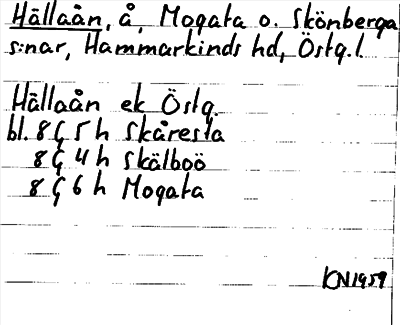 Hällaån, å, Mogata o. Skönberga
s:nar, Hammarkinds hd, Östg.l.
Hällaån ek Östg.
bl. 8 G 5 h Skåresta
8 G 4 h Skälboö
8 G 6 h Mogata
KN 1959